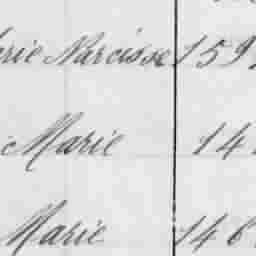 rie Narcisse 159
Marie 14
Marie 146